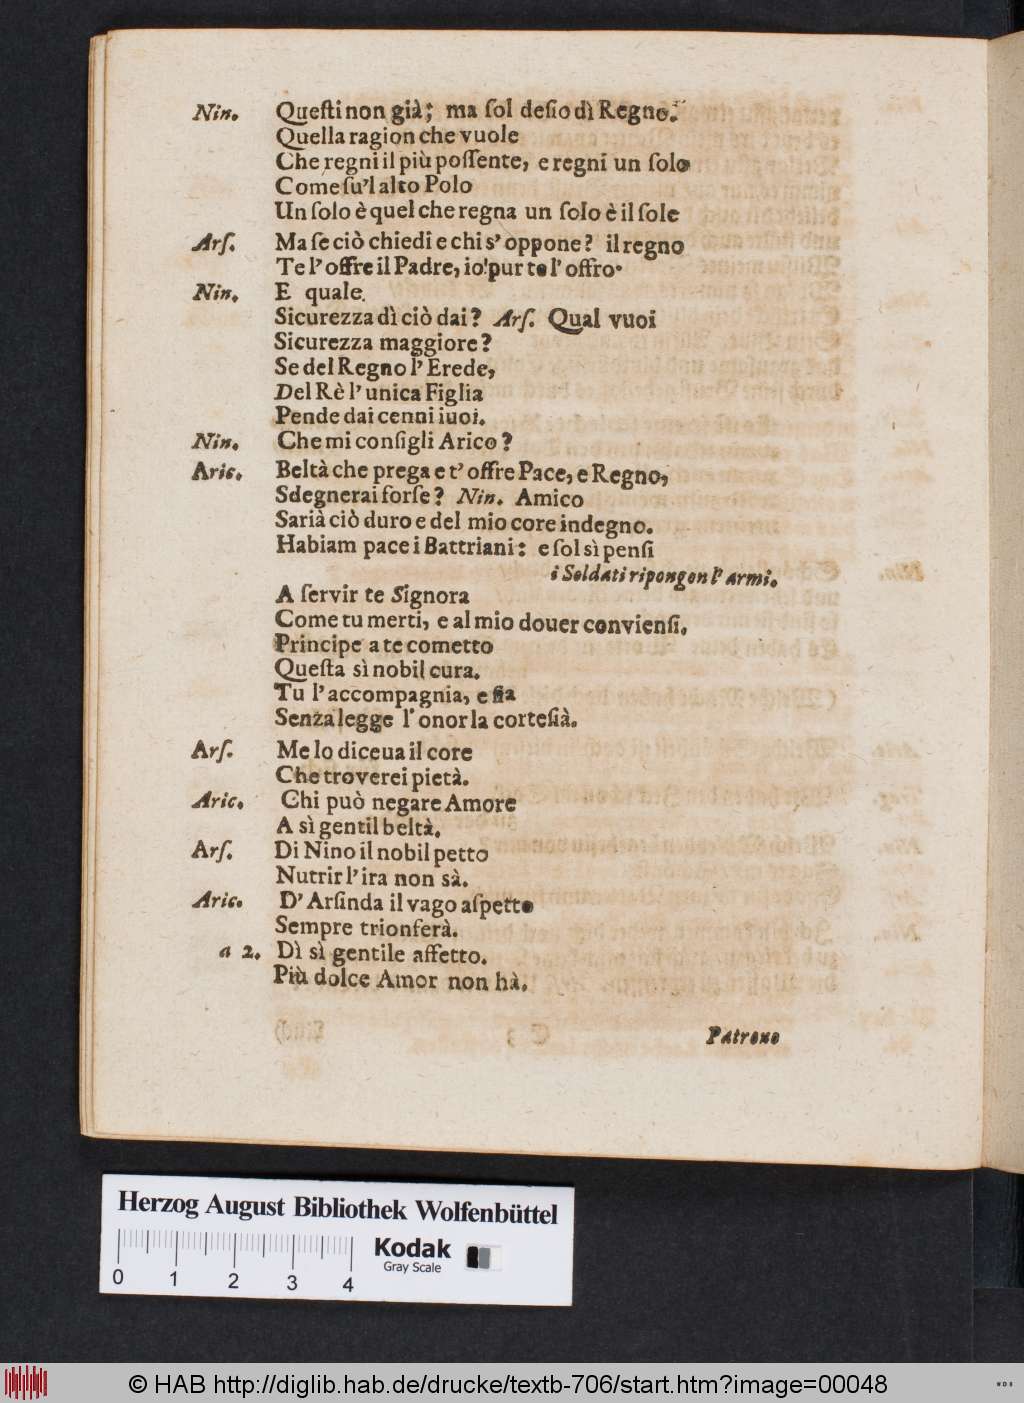 Nin. Queſti non già; ma ſol deſio dì Regno.
Quella ragion che vuole
Che regni il più poſſente, e regni un ſolo
Come ſu'l alto Polo
Un ſolo è quel che regna un ſolo è il ſole
Arſ. Ma ſe ciò chiedi e chi s' oppone? il regno
Te l' offre il Padre, io! pur te l' offro.
Nin. E quale.
Sicurezza dì ciò dai? Arſ. Qual vuoi
Sicurezza maggiore?
Se del Regno l' Erede,
Del Rè l' unica Figlia
Pende dai cenni iuoi.
Nin. Che mi conſigli Arico?
Aric. Beltà che prega e t' offre Pace, e Regno,
Sdegnerai forſe? Nin. Amico
Sarià ciò duro e del mio core indegno.
Habiam pace i Battriani: e ſol sì penſi
i Soldati ripongon l' armi.
A ſervir te Signora
Come tu merti, e al mio douer convienſi,
Principe a te cometto
Queſta sì nobil cura.
Tu l' accompagnia, e ſia
Senza legge l' onor la corteſià.
Arſ. Me lo diceua il core
Che troverei pietà.
Aric. Chi può negare Amore
A sì gentil beltà.
Arſ. Di Nino il nobil petto
Nutrir l' ira non sà.
Aric. D' Arſinda il vago aſpetto
Sempre trionferà.
a 2. Dì sì gentile affetto.
Più dolce Amor non hà.
Patrono
Herzog August Bibliothek Wolfenbüttel
0 1 2 3 4
Kodak
Gray Scale
© HAB http://diglib.hab.de/drucke/textb-706/start.htm?image=00048